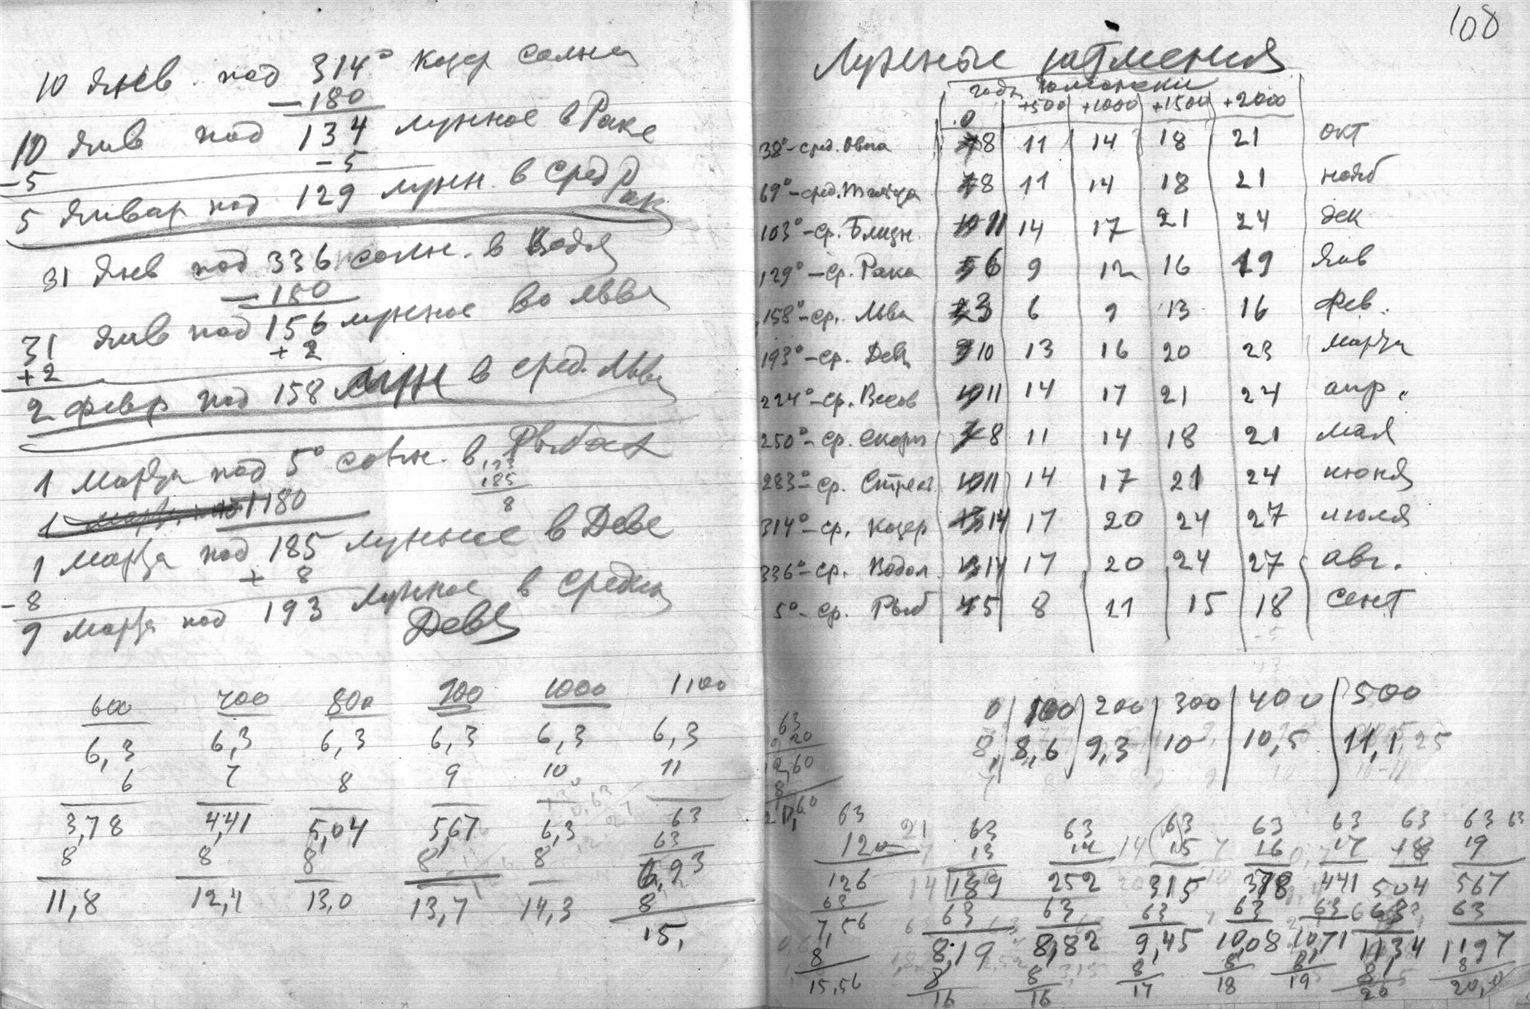 10 янв. под 314° Козер солнц
—180
10 янв под 134 лунное в Раке
-5 -5
5 январ под 129 лунн. в сред Рак
31 янв под 336 солн. в Водол
—180
31 янв под 156 лунное во Льве
+2 +2
2 февр под 158 лун в сред. Льва
1 марта под 5° солн. в Рыбах
193
185
8
180
1 марта под 185 лунное в Деве
-8 + 8
9 марта под 193 лунное в средин
Девы
600 700 800 900 1000 1100
6,3 6,3 6,3 6,3 6,3 6,3
6 7 8 9 10 11
3,78 4,41 5,04 5,67 6,3 63
63
8 8 8 8 8 6,93
11,8 12,4 13,0 13,7 14,3 8
15,
108
Лунные затмения
годы
0 +500 +1000 +1500 +2000
38°-сред. Овна 8 11 14 18 21 окт
69°-сред. Тельца 8 11 14 18 21 нояб
103°-ср. Близн. 11 14 17 21 24 дек
129°-ср. Рака 6 9 12 16 19 янв
158°-ср. Льва 3 6 9 13 16 фев.
193°-ср. Дев 10 13 16 20 23 марта
224°-ср. Весов 11 14 17 21 24 апр.
250°-ср. Скорп 8 11 14 18 21 мая
283°-ср. Стрел 11 14 17 21 24 июня
314°-ср. Козер 14 17 20 24 27 июля
336°-ср. Водол 14 17 20 24 27 авг.
5°-ср. Рыб 5 8 11 15 18 сент
0 100 200 300 400 500
8, 8,6 9,3 10 10,5 11,1
63 63 63 63 63 63 63 63
12 13 14 15 16 17 18 19
126 189 252 315 378 441 504 567
63 63 63 63 63 63 63 63
7,56 8,19 8,82 9,45 10,08 10,71 11,34 11,97
8 8 8 8 8 8 8 8
15,56 16 16 17 18 19 20 20,0